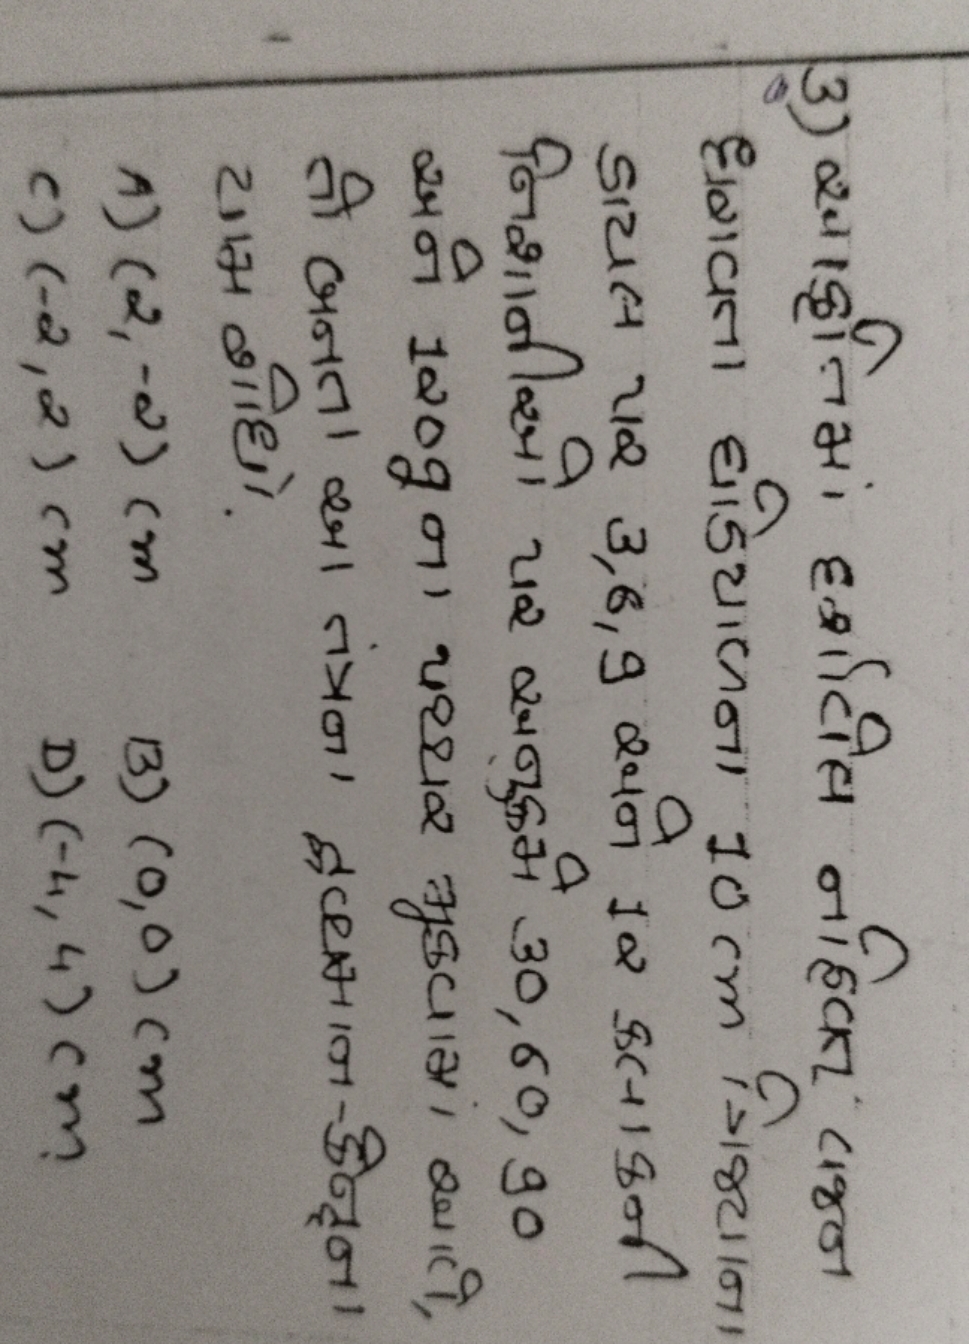 3) આકૃતિમાં દર્શાવેલ નહિવત્ વજન
ધરાવતા ઘડિયાળના 10 cm ત્રિજ્યાના
ડાયલ પર 3, 6, 9 અને 12 કલાકની
નિશાનીઓ પર અનુક્રમે 30, 60, 90
અને 120g ના પથ્થર મુકવામાં આવે,
તો બનતા આ તંત્રના દ્રવ્યમાન-કેન્દ્રના
યામ શોધો.
A) (2, -2) cm B) (0, 0) cm
C) (-2, 2) cm D) (-4, 4) cm